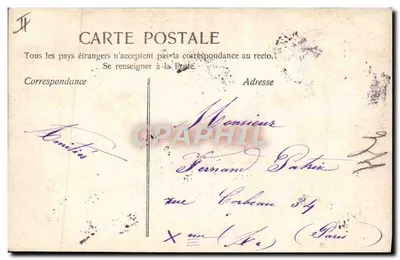 CARTE POSTALE
Tous les pays étrangers n'acceptent pas la correspondance au recto.
Se renseigner à la Poste.
Correspondance
Adresse
Amitiés
Monsieur
Fernand
rue Corbeau 34
Xème
(Paris)
CPAPHIL